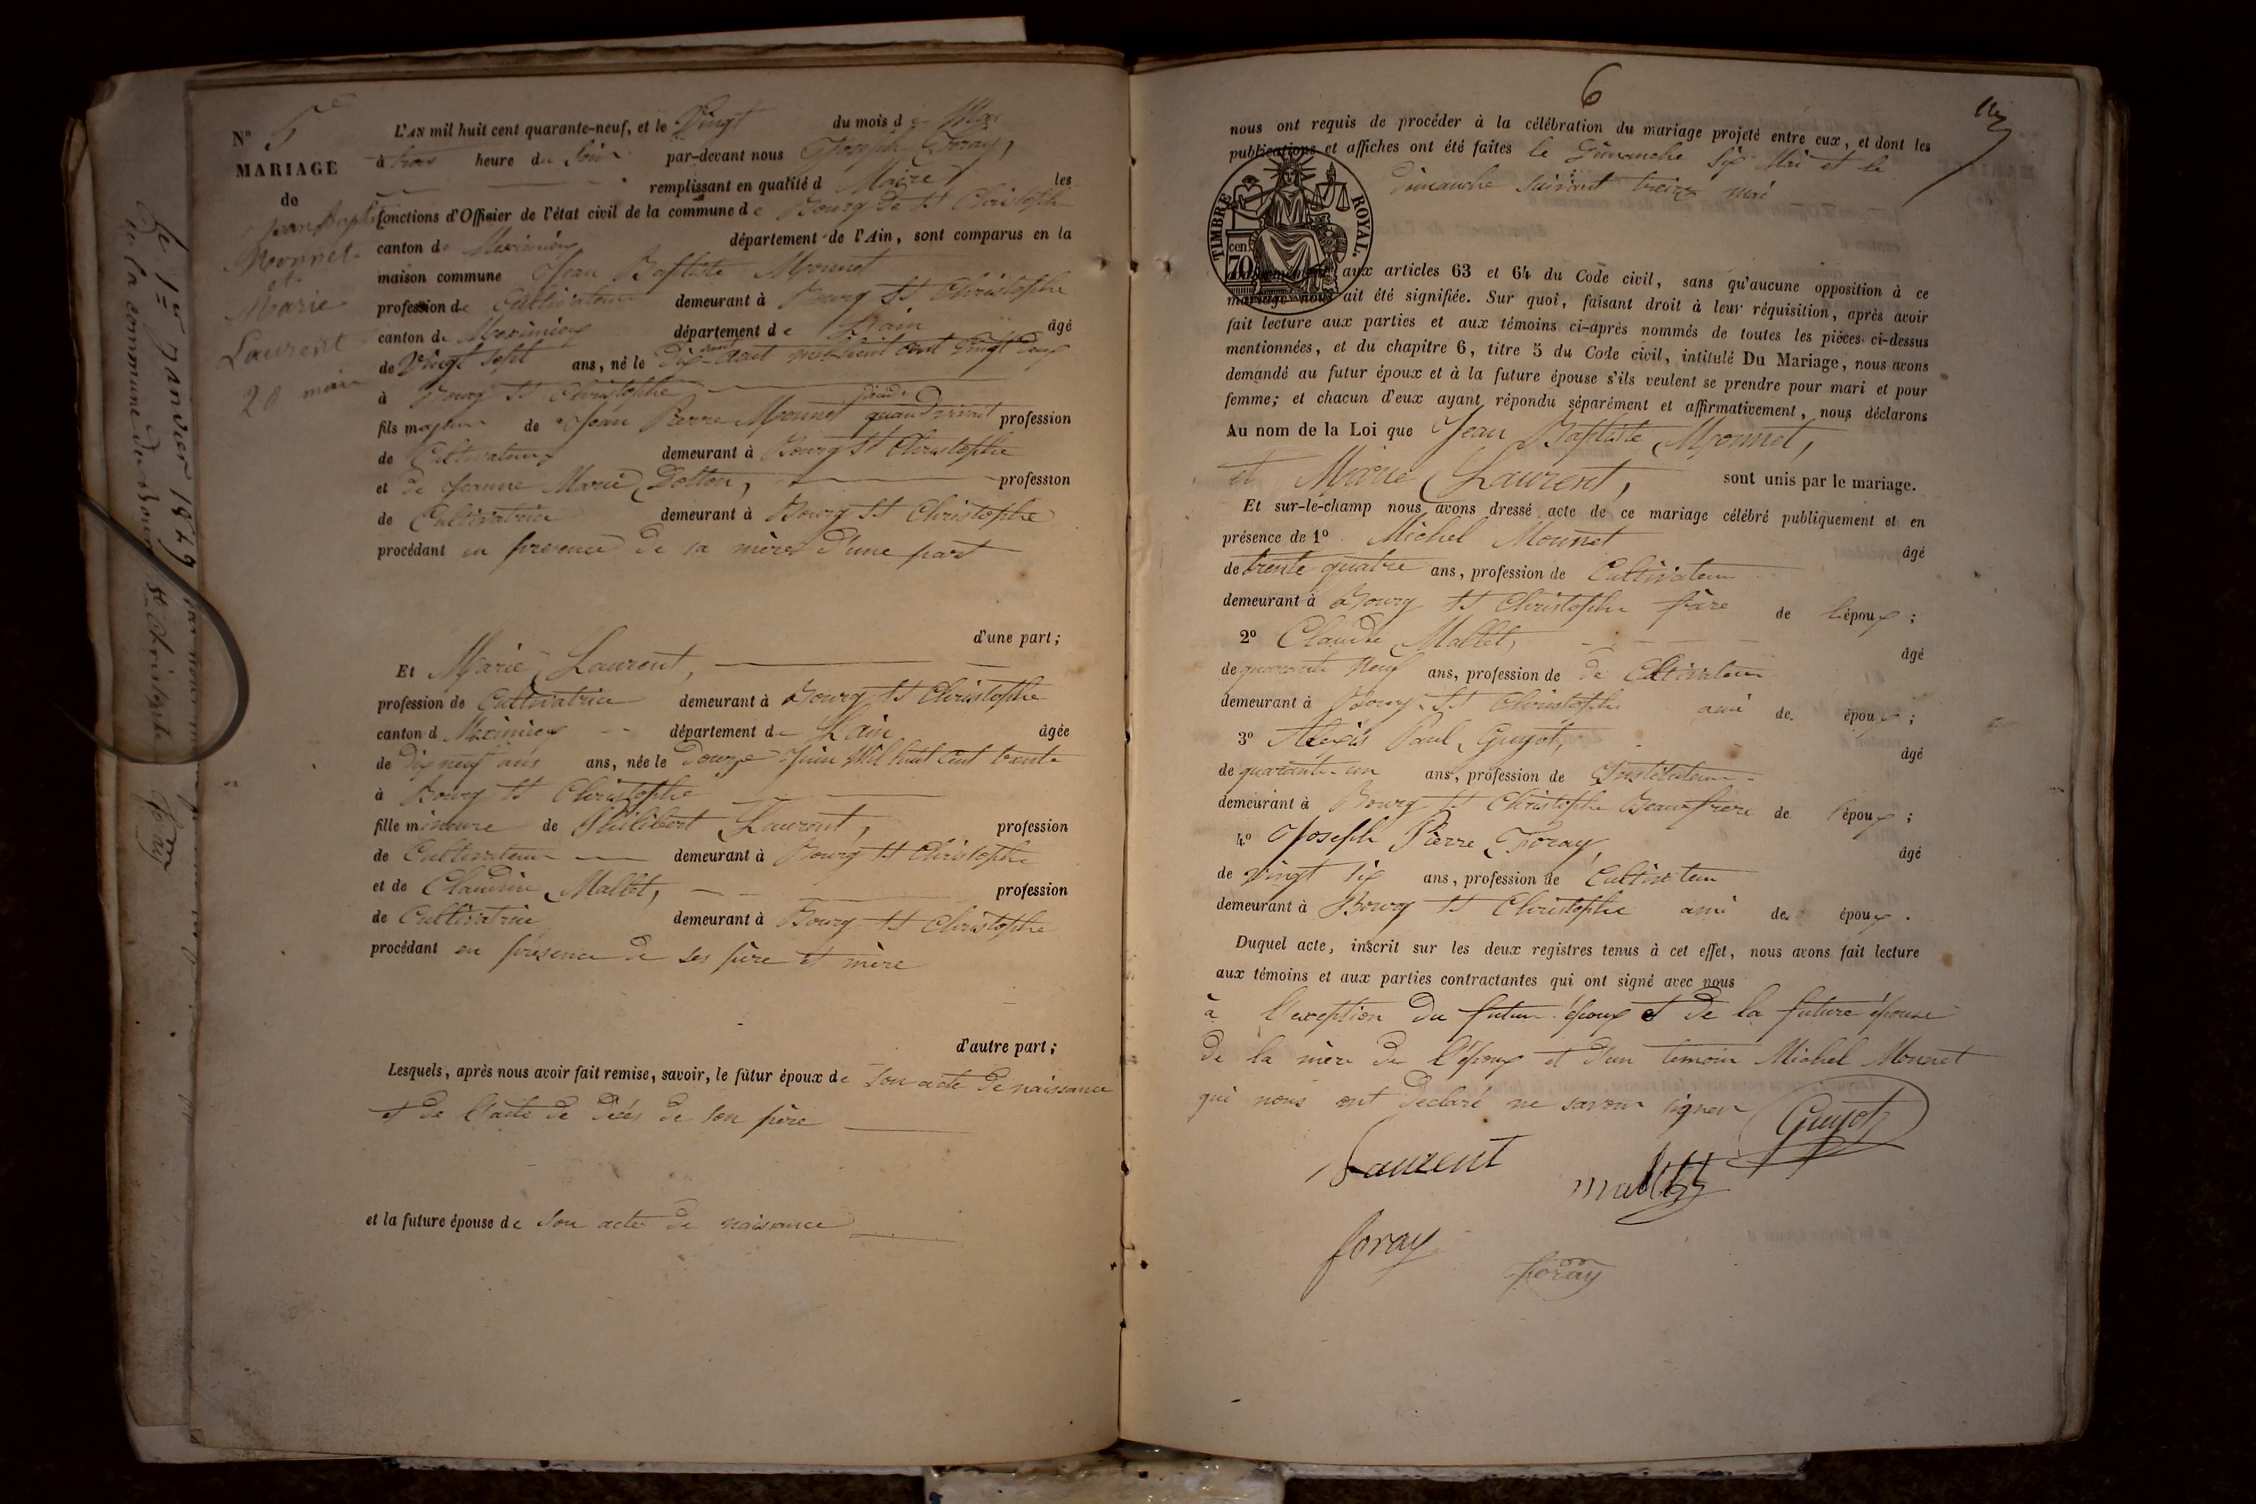 Nº 5
MARIAGE
de
Jean Baptiste
Monnet
et
Marie
Laurent
20 mai
L'AN mil huit cent quarante-neuf, et le Vingt du mois de Mai
à trois heure du soir par-devant nous Joseph Foray,
remplissant en qualité de Maire les
fonctions d'Officier de l'état civil de la commune de Bourg de St Christophe
canton de Meximieux département de l'Ain, sont comparus en la
maison commune Jean Baptiste Monnet
profession de Cultivateur demeurant à Bourg St Christophe
canton de Meximieux département de l'ain âgé
de Vingt sept ans, né le Dix aout mil huit cent vingt deux
à Bourg St Christophe
fils majeur de Jean Pierre Monnet quand vivait profession
de Cultivateur demeurant à Bourg St Christophe
et de Jeanne Marie Dotton, profession
de Cultivatrice demeurant à Bourg St Christophe
procédant en presence de sa mère d'une part
d'une part;
Et Marie Laurent,
profession de Cultivatrice demeurant à Bourg St Christophe
canton d Meximieux département de L'ain âgée
de Dix neuf ans ans, née le Douze Juin Mil huit cent trente
à Bourg St Christophe
fille mineure de Philibert Laurent, profession
de Cultivateur demeurant à Bourg St Christophe
et de Claudine Mallet, profession
de Cultivatrice demeurant à Bourg St Christophe
procédant en presence de ses père et mère
d'autre part;
Lesquels, après nous avoir fait remise, savoir, le futur époux de son acte de naissance
et de l'acte de décés de son père
et la future épouse de son acte de naissance
Le 1er janvier 1849
de la commune du Bourg St Christophe Foray
6
nous ont requis de procéder à la célébration du mariage projeté entre eux, et dont les
publications et affiches ont été faites le Dimanche six Mai et le
dimanche suivant treize mai
TIMBRE ROYAL.
cen. 70
aux articles 63 et 64 du Code civil, sans qu'aucune opposition à ce
mariage nous ait été signifiée. Sur quoi, faisant droit à leur réquisition, après avoir
fait lecture aux parties et aux témoins ci-après nommés de toutes les pièces ci-dessus
mentionnées, et du chapitre 6, titre 5 du Code civil, intitulé Du Mariage, nous avons
demandé au futur époux et à la future épouse s'ils veulent se prendre pour mari et pour
femme; et chacun d'eux ayant répondu séparément et affirmativement, nous déclarons
Au nom de la Loi que Jean Baptiste Monnet,
et Marie Laurent, sont unis par le mariage.
Et sur-le-champ nous avons dressé acte de ce mariage célébré publiquement et en
présence de 1º Michel Monnet âgé
de trente quatre ans, profession de Cultivateur
demeurant à Bourg St Christophe frère de l'époux;
2º Claude Mallet, âgé
de quarante neuf ans, profession de de Cultivateur
demeurant à Bourg St Christophe ami de époux;
3º Alexis Paul Guyot, âgé
de quarante un ans, profession de Instituteur
demeurant à Bourg St Christophe Beaufrere de l'époux;
4º Joseph Pierre Foray, âgé
de vingt six ans, profession de Cultivateur
demeurant à Bourg St Christophe ami de époux.
Duquel acte, inscrit sur les deux registres tenus à cet effet, nous avons fait lecture
aux témoins et aux parties contractantes qui ont signé avec nous
à l'exception du futur époux et de la future épouse
de la mère de l'époux et d'un temoin Michel Monnet
qui nous ont declaré ne savoir signer
Guyot
Laurent
mallet
foray
foray